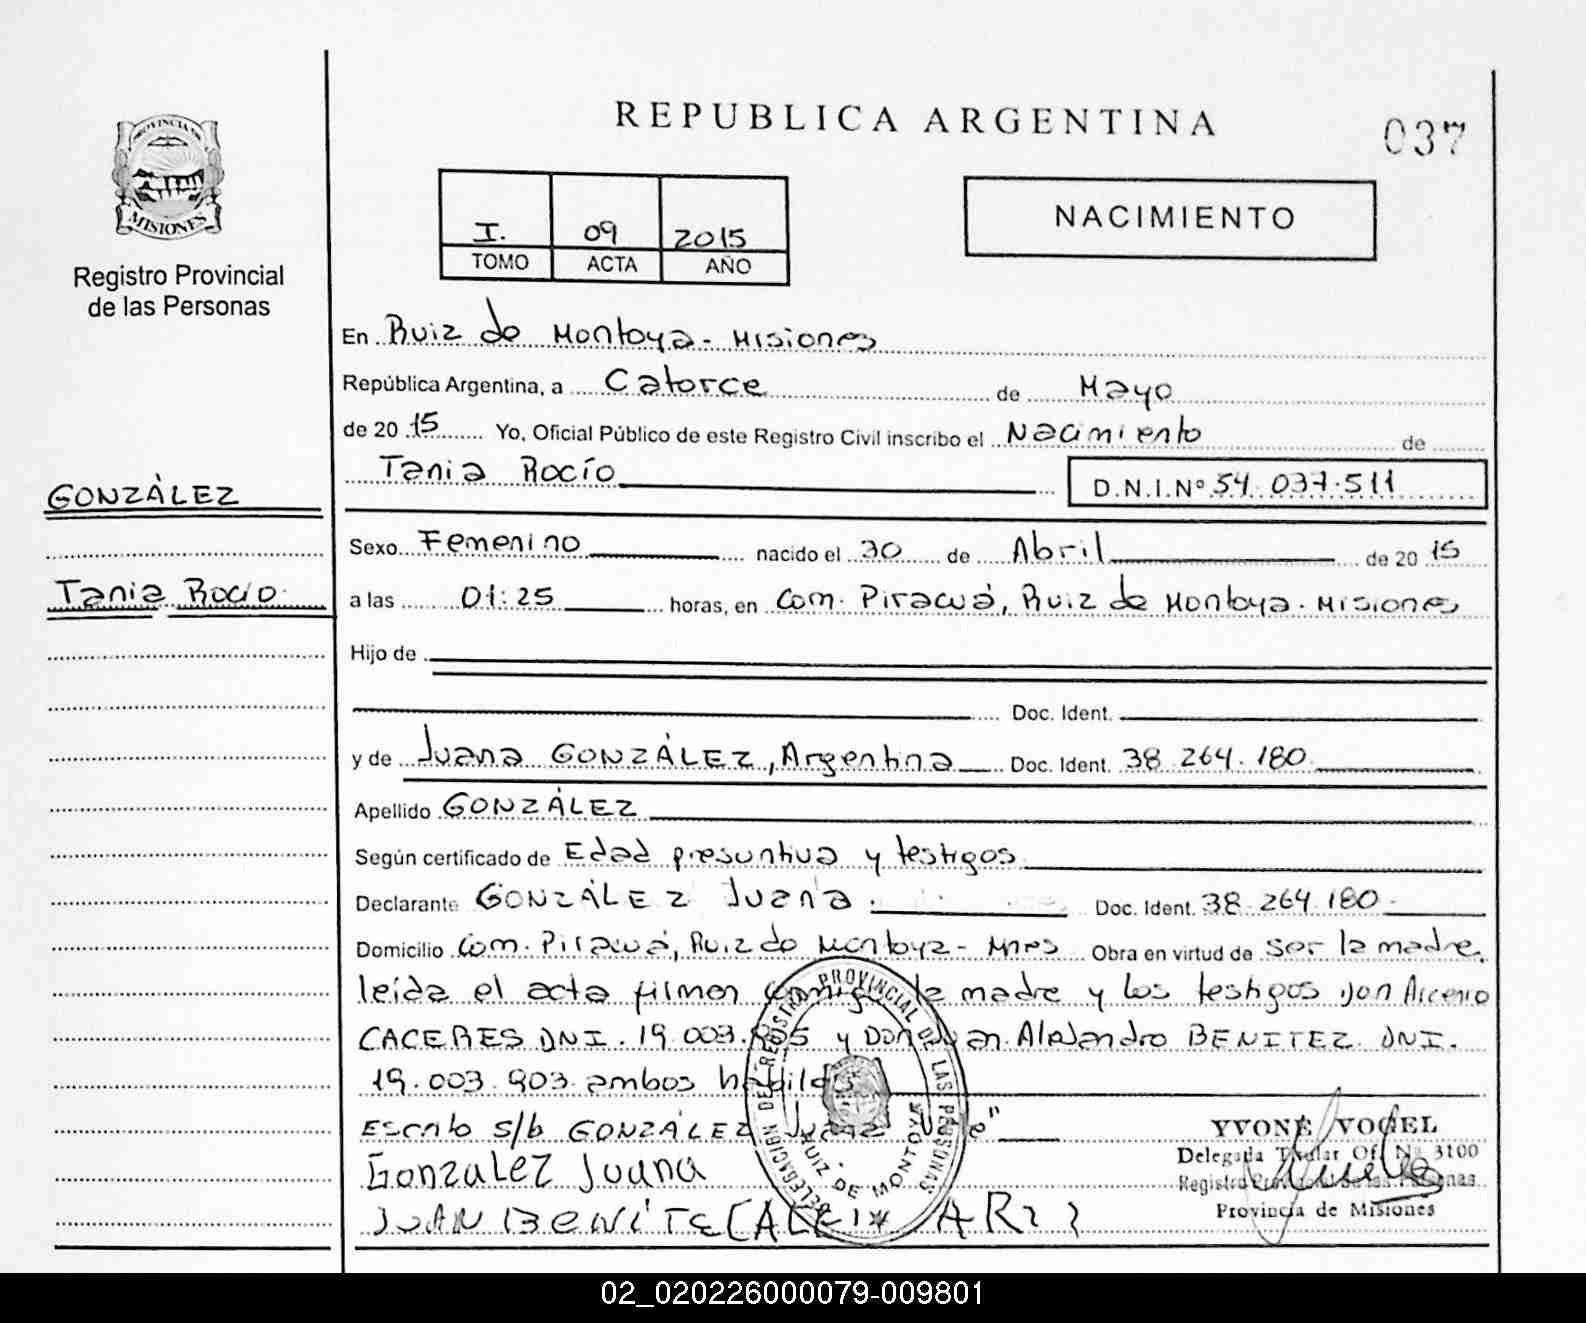 REPUBLICA ARGENTINA
037
PROVINCIA
MISIONES
Registro Provincial
de las Personas
I. 09 2015
TOMO ACTA AÑO
NACIMIENTO
En Ruiz de Montoya - Misiones
República Argentina, a Catorce de Mayo
de 20 15 Yo, Oficial Público de este Registro Civil inscribo el Nacimiento de
Tania Rocío D.N.I.Nº 54.037.511
GONZÁLEZ
Tania Rocío
Sexo Femenino nacido el 30 de Abril de 20 15
a las 01:25 horas, en Com. Piracuá, Ruiz de Montoya. Misiones
Hijo de
Doc. Ident.
y de Juana GONZÁLEZ, Argentina Doc. Ident. 38.264.180
Apellido GONZÁLEZ
Según certificado de Edad presuntiva y testigos
Declarante GONZÁLEZ Juana. Doc. Ident. 38.264.180.
Domicilio Com. Piracuá, Ruiz de Montoya - Mnes Obra en virtud de ser la madre,
leída el acta firman conmigo la madre y los testigos Don Arcenio
CACERES DNI. 19.003. y Don Juan Alejandro BENITEZ DNI.
19.003.903. ambos
Escrito s/b GONZÁLEZ Juana
Gonzalez Juana
JUAN BENITE
DELEGACION DE REGISTRO PROVINCIAL DE LAS PERSONAS
RUIZ DE MONTOYA
YVONE VOGEL
Delegada Titular Of. Nº 3100
Registro Provincial de las Personas
Provincia de Misiones
02_020226000079-009801